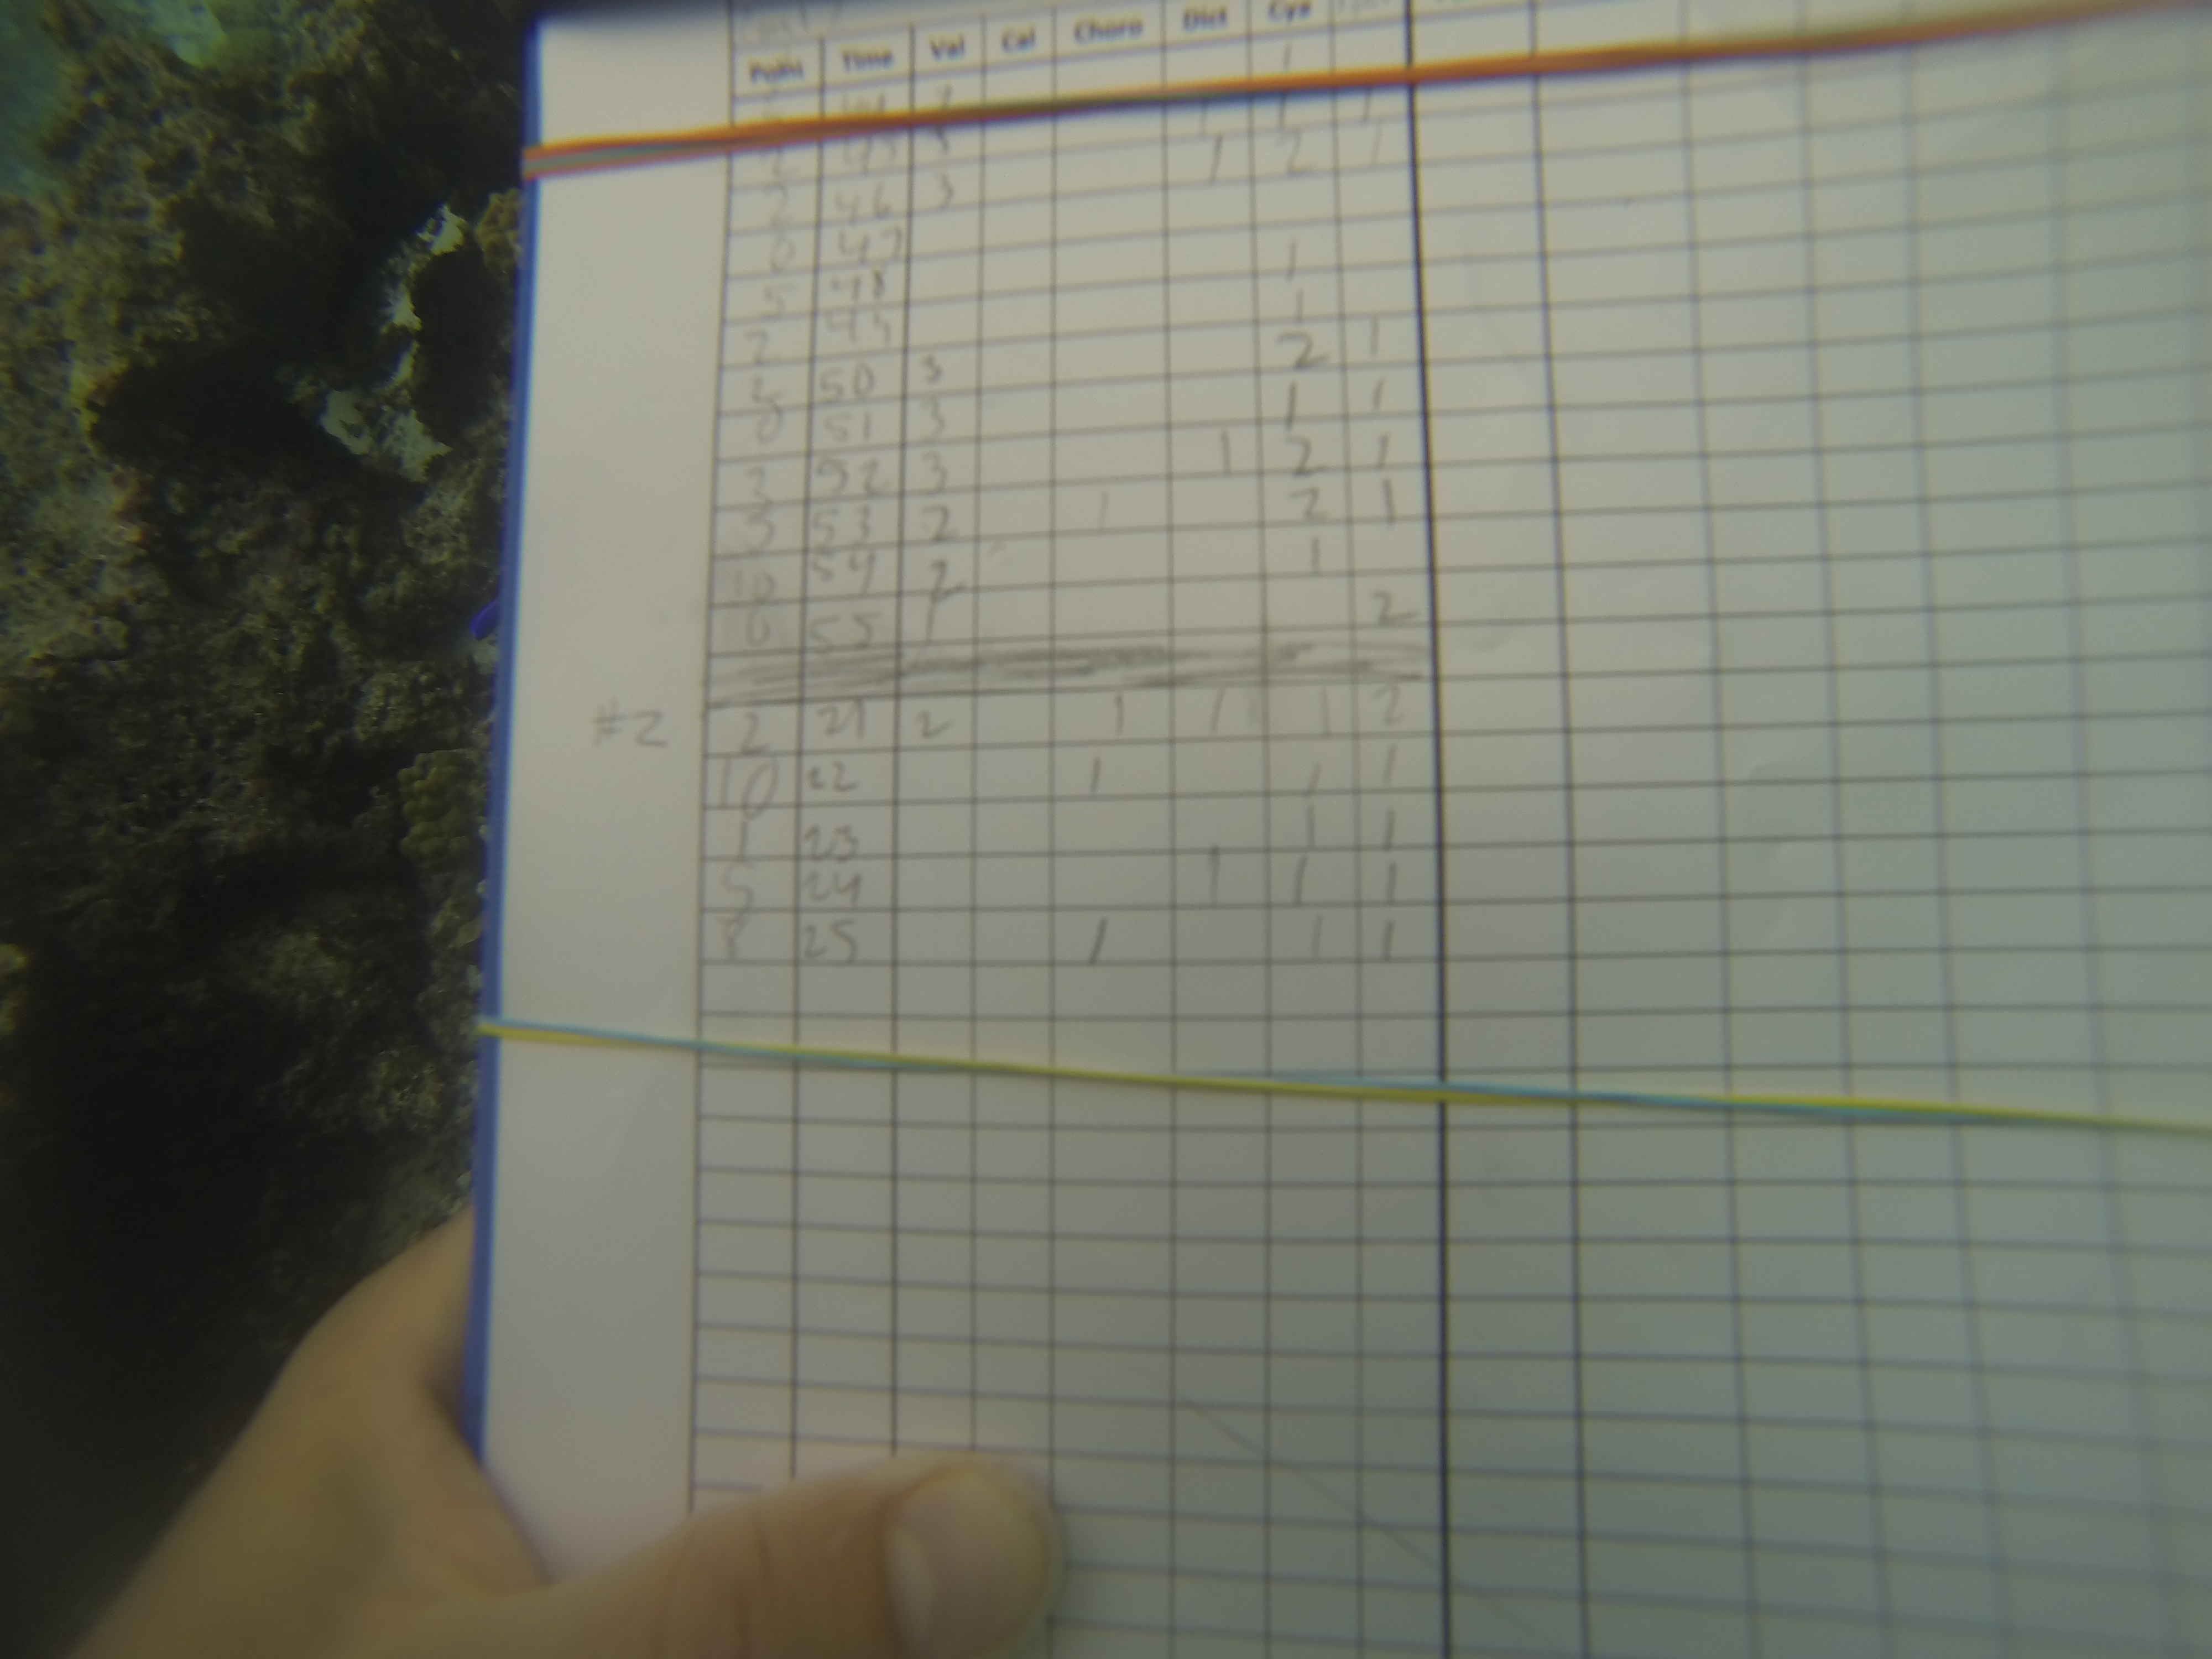 Point Time Val Cal Choro Dict Cya
1
1 1 1
45 1 2 1
2 46 3
0 47
5 48 1
2 1
50 3 2 1
0 51 3 1 1
3 52 3 1 2 1
3 53 2 1 2 1
10 54 2 1
0 55 1 2
#2 2 21 2 1 1 1 2
10 22 1 1 1
1 23 1 1
5 24 1 1 1
8 25 1 1 1